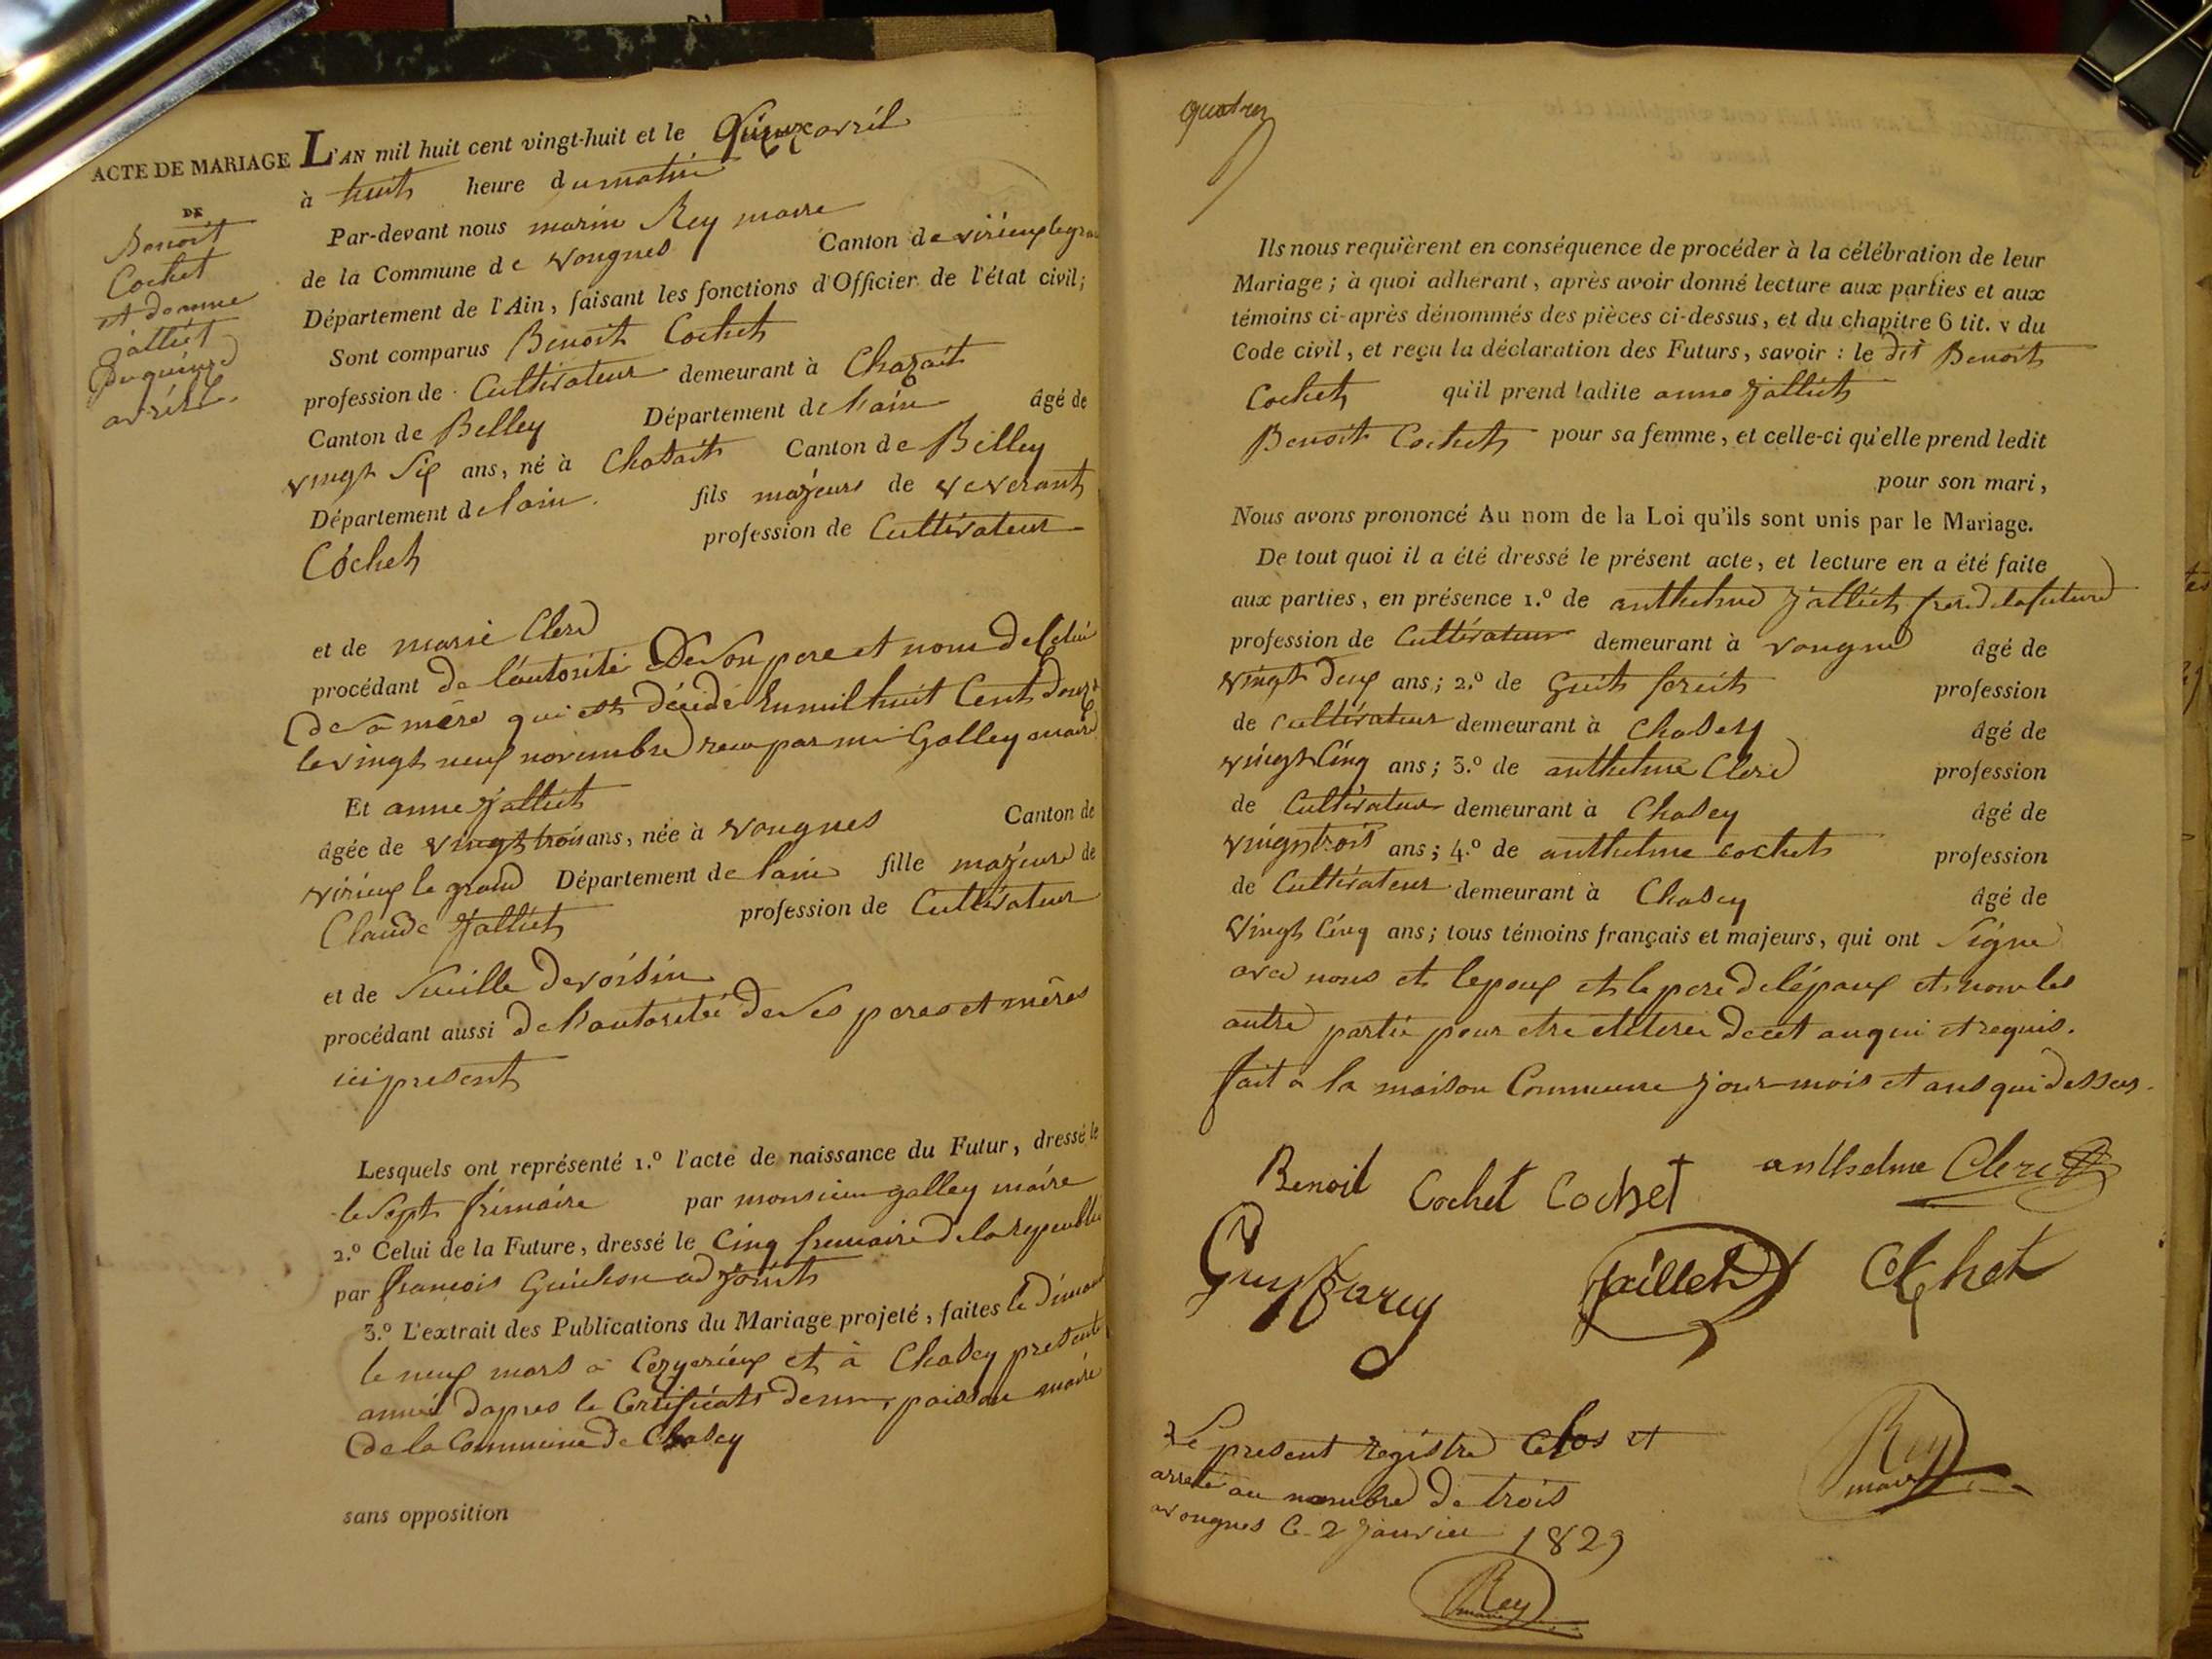 ACTE DE MARIAGE
DE
Benoit
Cochet
et d anne
jalliet
Du quinze
avrille.
L'AN mil huit cent vingt-huit et le Quinze avril
à huit heure du matin
Par-devant nous marin Rey maire
de la Commune de vongnes Canton de virieux legrand
Département de l'Ain, faisant les fonctions d'Officier de l'état civil;
Sont comparus Benoit Cochet
profession de Cultivateur demeurant à Chazait
Canton de Belley Département de l'ain âgé de
vingt six ans, né à Chasait Canton de Billey
Département de lain. fils majeurs de veverant
Cochet profession de Cultivateur
et de marie Clerc
procédant de l'autorité De son pere et nom de Celui
De sa mère qui est décidé En mil huit Cent douze
le vingt neuf novembre recu par mr Galley maire
Et anne jalliet
âgée de vingt trois ans, née à vongnes Canton de
virieux le grand Département de lain fille majeure de
Claude jalliet profession de Cultivateur
et de devoisin
procédant aussi De l'autorité de ses peres et mères
ici present
Lesquels ont représenté 1.º l'acte de naissance du Futur, dressé le
le sept frimaire par monsieur galley maire
2.º Celui de la Future, dressé le Cinq frimaire de la
par francois Guichon adjoint
3.º L'extrait des Publications du Mariage projeté, faites le
le neuf mars a Ceyzerieux et à Chasey presente
année dapres le Certificats de mr poisson maire
De la Commune de Chasey
sans opposition
quatre
Ils nous requièrent en conséquence de procéder à la célébration de leur
Mariage; à quoi adhérant, après avoir donné lecture aux parties et aux
témoins ci-après dénommés des pièces ci-dessus, et du chapitre 6 tit. v du
Code civil, et reçu la déclaration des Futurs, savoir : le dit Benoit
Cochet qu'il prend ladite anne jalliet
Benoit Cochet pour sa femme, et celle-ci qu'elle prend ledit
pour son mari,
Nous avons prononcé Au nom de la Loi qu'ils sont unis par le Mariage.
De tout quoi il a été dressé le présent acte, et lecture en a été faite
aux parties, en présence 1.º de anthelme jalliet frere de la future
profession de Cultivateur demeurant à vongne âgé de
vingt deux ans; 2.º de profession
de cultivateur demeurant à Chasey âgé de
vingt Cinq ans; 3.º de anthelme Clerc profession
de Cultivateur demeurant à Chasey âgé de
vingt trois ans; 4.º de anthelme cochet profession
de Cultivateur demeurant à Chasey âgé de
Vingt Cinq ans; tous témoins français et majeurs, qui ont Signe
avec nous et lepoux et le pere de lépoux et non les
autre partie pour etre de cet et requis.
fait a la maison Commune jour mois et ans que dessus.
Benoit Cochet Cochet anthelme Clerc
Guy jaillet Cochet
Le present registre Clos et
arrete au nombre de trois
a vongnes le 2 janvier 1829
Rey
maire
Rey
maire